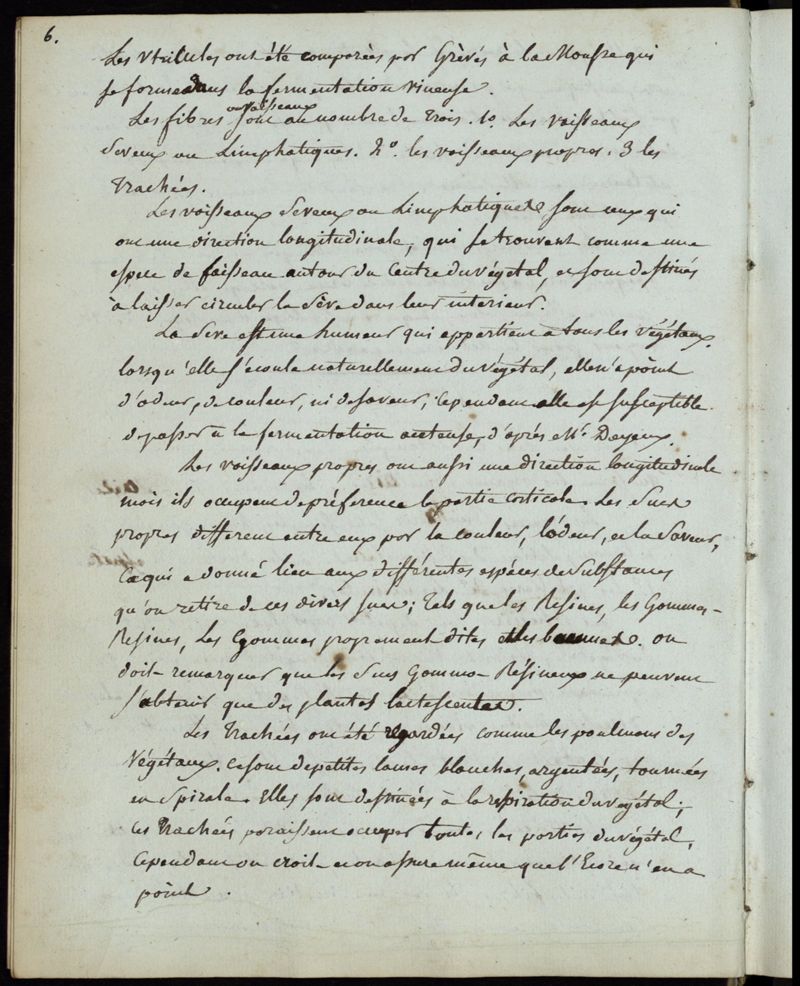 6.
Les Utricules ont été comparées par Grèves à la Mousse qui
se forme dans la fermentation vineuse.
ou vaisseaux
Les fibres sont au nombre de trois. 1o. Les vaisseaux
Seveux ou Limphatiques. 2o. les vaisseaux propres. 3 les
trachées.
Les vaisseaux Seveux ou Limphatiques sont ceux qui
ont une direction longitudinale, qui se trouvent comme une
espece de faisseau autour du Centre du végétal, et sont destinés
à laisser circuler la Sève dans leur interieur.
La Seve est une humeur qui appartient à tous les végétaux.
lorsqu'elle s'écoule naturellement du végétal, elle n'a point
d'odeur, de couleur, ni de saveur, cependant elle est susceptible
de passer à la fermentation aceteuse, d'après Mr. Deyeux.
Les vaisseaux propres ont aussi une direction longitudinale
mais ils occupent de préference la partie corticale. Les Sucs
propres different entre eux par la couleur, l'odeur, et la Saveur,
Ce qui a donné lieu aux différentes espéces de Substances
qu'on retire de ces divers sucs; tels que les Resines, les Gommes-
Resines, Les Gommes proprement dites et les baumes. on
doit remarquer que les Sucs Gommo-Résineux ne peuvent
s'obtenir que des plantes lactescentes.
Les Trachées ont été regardées comme les poulmons des
Végétaux. ce sont de petites lames blanches, argentées, tournées
en Spirale. Elles sont destinées à la respiration du végétal;
Ces Trachées paraissent occuper toutes les parties du végétal,
Cependant on croit et on assure même que l'Ecorce n'en a
point.